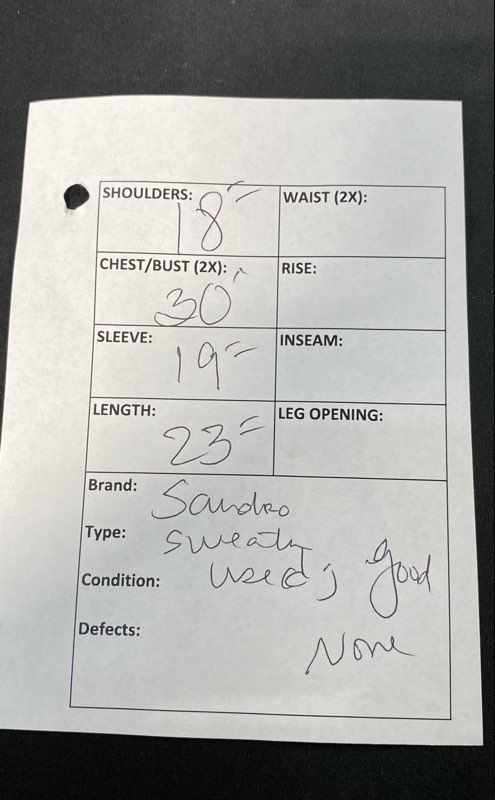 SHOULDERS: 18" WAIST (2X):
CHEST/BUST (2X): 30" RISE:
SLEEVE: 19" INSEAM:
LENGTH: 23" LEG OPENING:
Brand: Sandro
Type: sweater
Condition: used; good
Defects: None